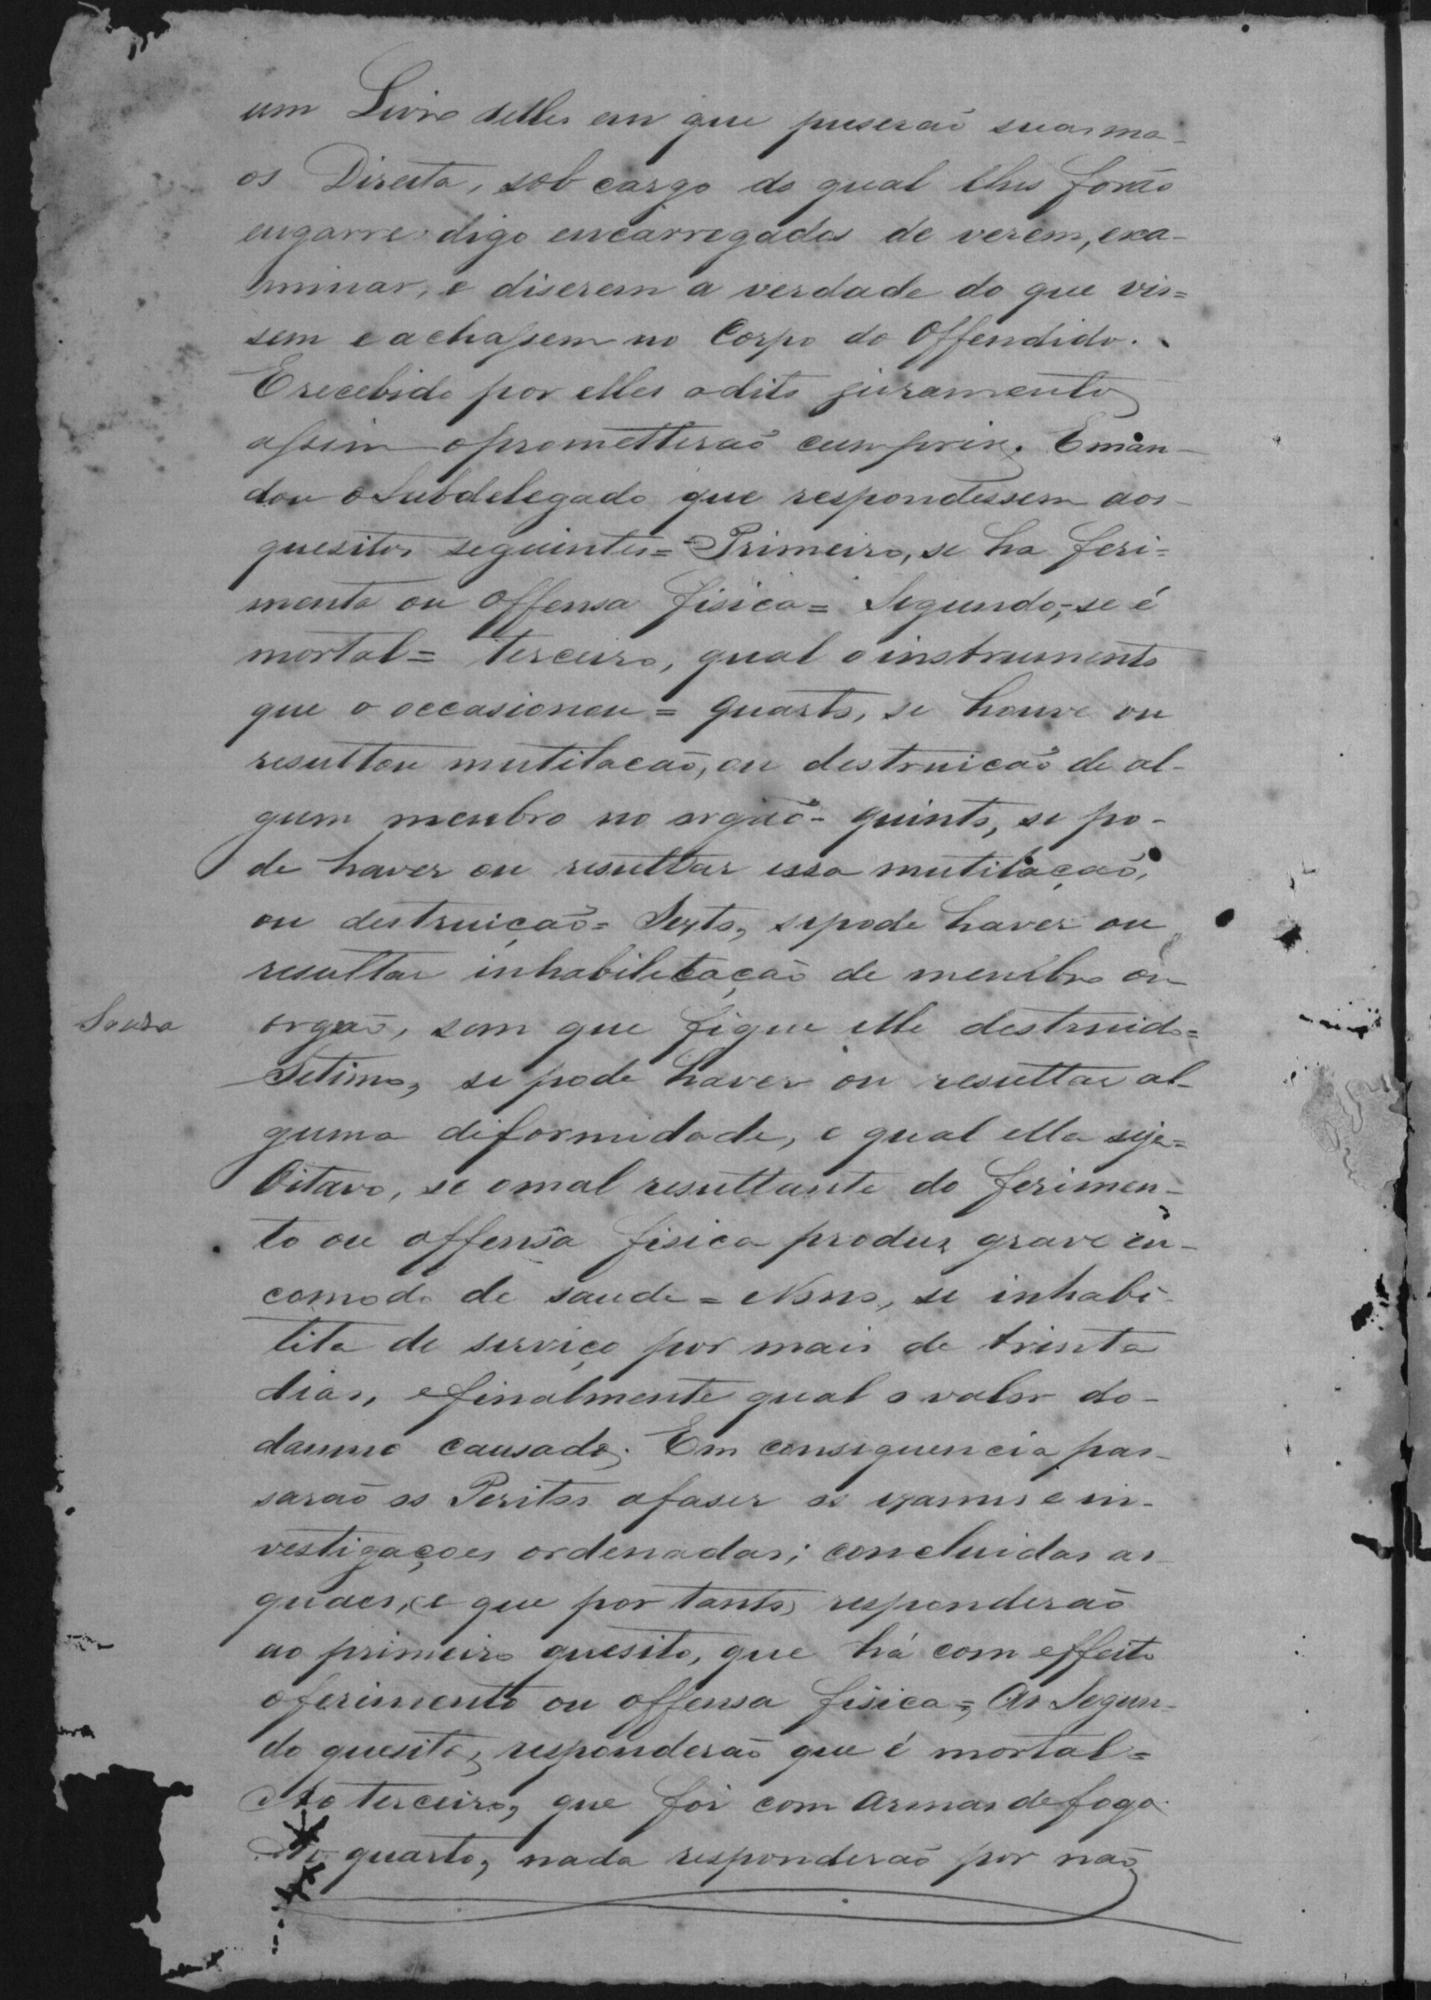 um Livro delles em que puserão suas ma-
os Direita, sob cargo do qual lhes forão
engarre digo encarregados de verem, exa-
minar, e diserem a verdade do que vis=
sem e achassem no Corpo do Offendido.
E recebido por elles o dito juramento
assim o prometterão cumprir. E man-
dou o Subdelegado que respondessem aos
quesitos seguintes = Primeiro, se ha feri=
mento ou offensa fisica = Segundo, se é
mortal = terceiro, qual o instrumento
que o occasionou = quarto, se houve ou
resultou mutilacaõ, ou destruicaõ de al-
gum membro no orgaõ - quinto, se po-
de haver ou resultar essa mutilaçaõ,
ou destruiçaõ = Sexto, se pode haver ou
resultar inhabilitaçaõ de membro ou
Souza
orgaõ, sem que fique elle destruido =
Setimo, se pode haver ou resultar al-
guma diformidade, e qual ella seje =
Oitavo, se o mal resultante do ferimen-
to ou offensa fisica produz grave in-
comodo de saude = Nono, se inhabi-
lita de serviço por mais de trinta
dias, e finalmente qual o valor do-
damno causado. Em consequencia pas-
saraõ os Peritos a faser os exames e in-
vestigaçoes ordenadas; concluidas as
quaes, e que por tanto responderaõ
ao primeiro quesito, que há com effeito
o ferimento ou offensa fisica = Ao Segun-
do quesito, responderaõ que é mortal =
Ao terceiro, que foi com armas de fogo.
Ao quarto, nada responderaõ por naõ